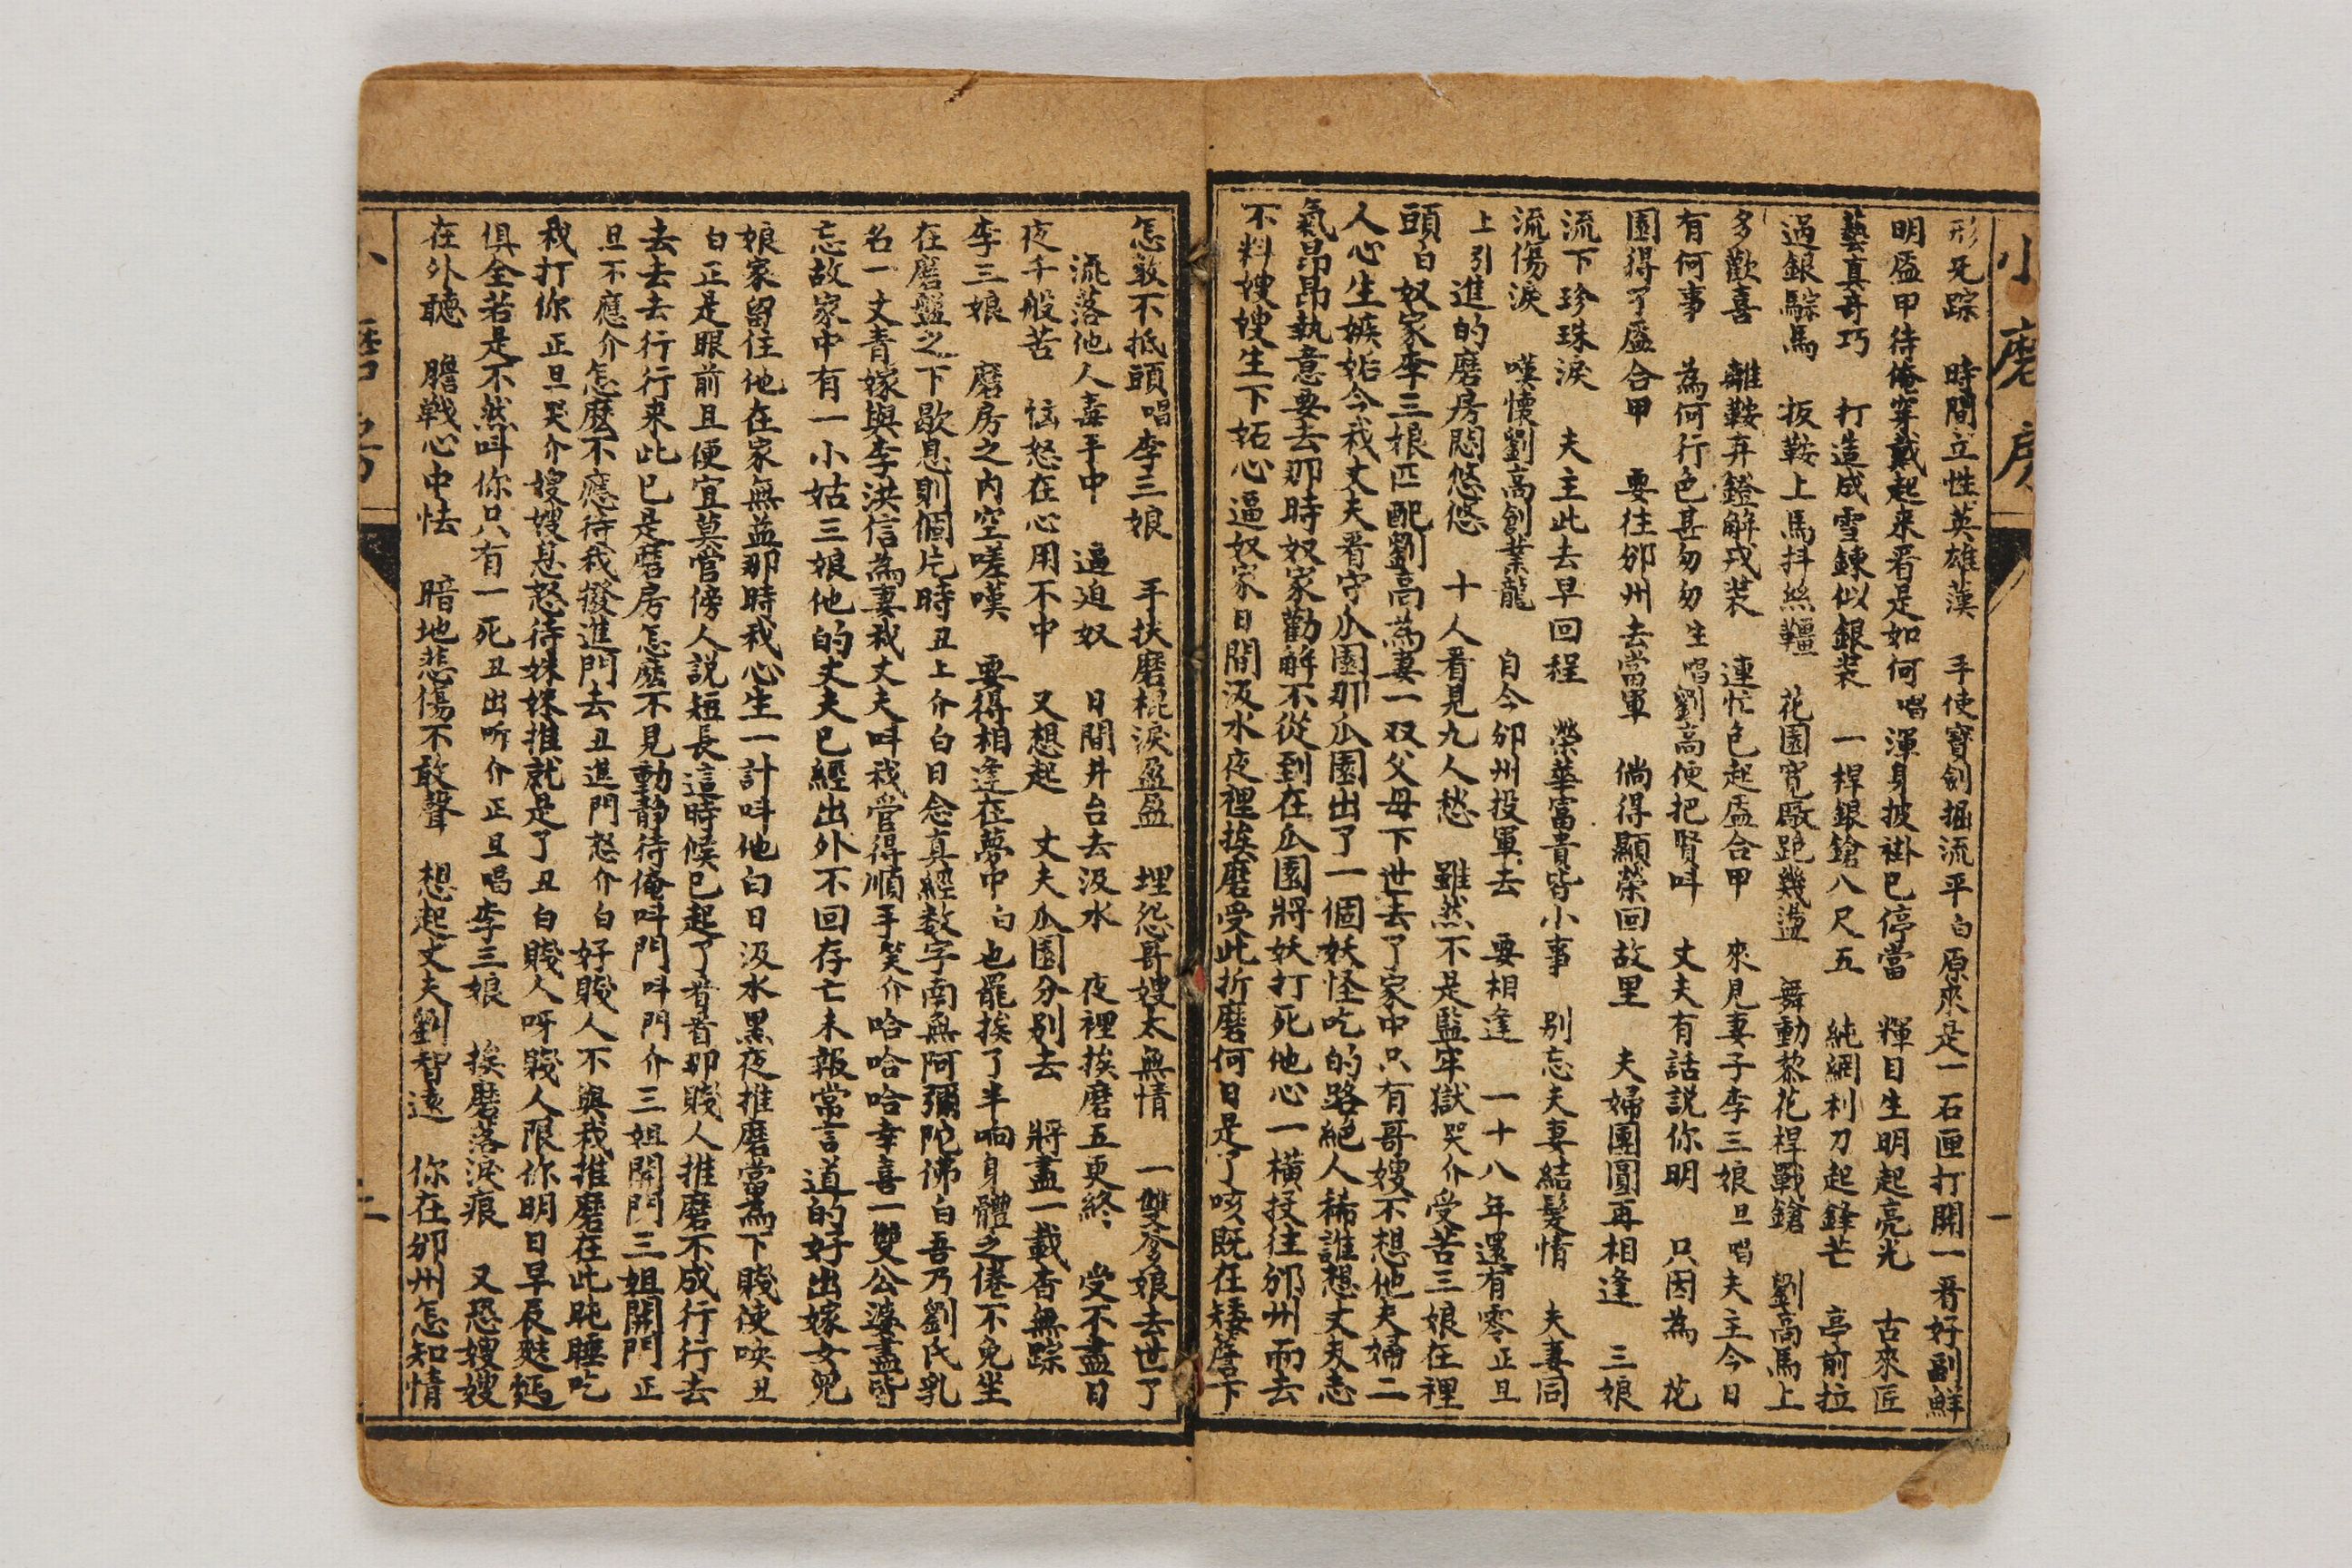 小磨房
一
形死踪　時間立性英雄漢　手使寶劍掘流平白原來是一石匣打開一看好副鮮
明盔甲待俺穿戴起來看是如何唱渾身披褂已停當　輝目生明起亮光　古來匠
藝真奇巧　打造成雪鍊似銀裝　一桿銀鎗八尺五　純網利刀起鋒芒　亭前拉
過銀鬃馬　扳鞍上馬抖絲韁　花園寬廠跑幾盪　舞動黎花桿戰鎗　劉高馬上
多歡喜　離鞍弃鐙解戎裝　連忙包起盔合甲　來見妻子李三娘旦唱夫主今日
有何事　為何行色甚匆匆生唱劉高便把賢叫　丈夫有話説你明　只因為　花
園得了盔合甲　要往邠州去當軍　倘得顯榮回故里　夫婦團圓再相逢　三娘
流下珍珠淚　夫主此去早回程　榮華富貴皆小事　别忘夫妻結髮情　夫妻同
流傷淚　嘆懷劉高創業龍　自今邠州投軍去　要相逢　一十八年還有零正旦
上引進的磨房悶悠悠　十人看見九人愁　雖然不是監牢獄哭介受苦三娘在裡
頭白奴家李三娘匹配劉高為妻一双父母下世去了家中只有哥嫂不想他夫婦二
人心生嫉妬今我丈夫看守小園那瓜園出了一個妖怪吃的路絕人稀誰想丈夫志
氣昂昂執意要去那時奴家勸解不從到在瓜園將妖打死他心一横投往邠州而去
不料嫂嫂生下妬心逼奴家日間汲水夜裡挨磨受此折磨何日是了咳既在矮簷下
怎敢不抵頭唱李三娘　手扶磨棍淚盈盈　埋怨哥嫂太無情　一雙爹娘去世了
流落他人毒手中　逼迫奴　日間井台去汲水　夜裡挨磨五更終　受不盡日
夜千般苦　惱怒在心用不中　又想起　丈夫瓜園分别去　將盡一載杳無踪
李三娘　磨房之内空嗟嘆　要得相逢在夢中白也罷挨了半晌身體之倦不免坐
在磨盤之下歇息則個片時丑上介白日念真經数字南無阿彌陀佛白吾乃劉氏乳
名一丈青嫁與李洪信為妻我丈夫叫我管得順手笑介哈哈哈幸喜一雙公婆盡皆
忘故家中有一小姑三娘他的丈夫已經出外不回存亡未報常言道的好出嫁女兒
娘家留住他在家無益那時我心生一計叫他白日汲水黑夜推磨當為下賤使唤丑
白正是眼前且便宜莫管傍人説短長這時候已起了看看那賤人推磨不成行行去
去去去行行來此已是磨房怎麽不見動静待俺叫門叫門介三姐開門三姐開門正
旦不應介怎麽不應待我撥進門去丑進門怒介白　好賤人不與我推磨在此盹睡吃
我打你正旦哭介嫂嫂息怒待妹妹推就是了丑白賤人呀賤人限你明日早辰麩麵
俱全若是不然叫你只有一死丑出听介正旦唱李三娘　挨磨落淚痕　又恐嫂嫂
在外聽　膽戰心中怯　暗地悲傷不敢聲　想起丈夫劉智遠　你在邠州怎知情
小磨房
二